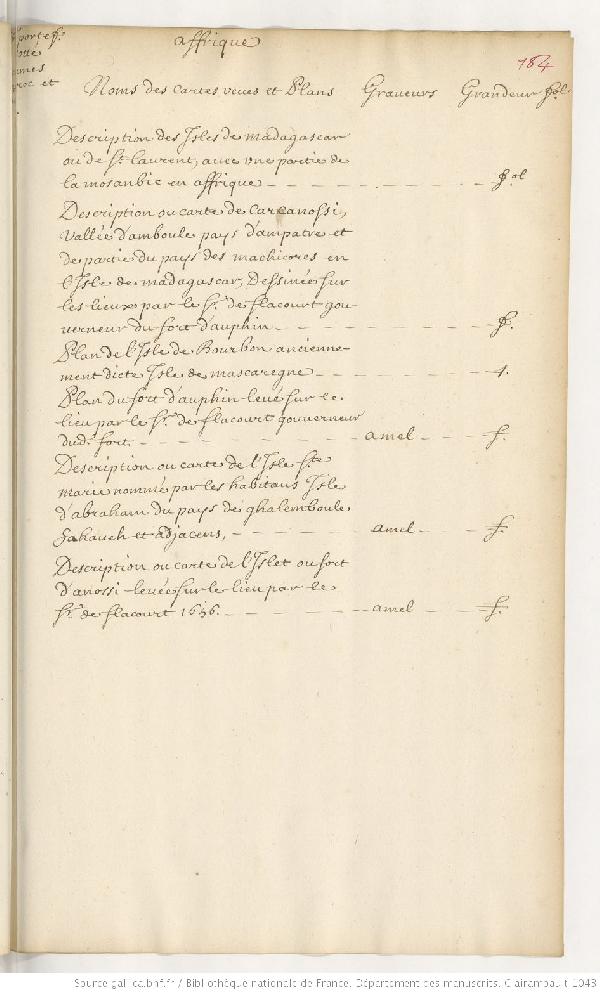 affrique
184
Noms des Cartes veues et Plans Graveurs Grandeur fol.
Description des Isles de madagascar
ou de St. Laurent, avec une partie de
la mosanbic en affrique fol
Description ou carte de Carcanossi,
Vallée d'amboule pays d'ampatre et
de partie du pays des machicores en
l'Isle de madagascar, Dessinée sur
les lieux par le Sr. de flacourt gou-
verneur du fort d'auphin f.
Plan de l'Isle de Bourbon ancienne-
ment dicte Isle de mascaregne
Plan du fort d'auphin levé sur le
lieu par le Sr. de flacourt gouverneur
dud. fort. amel f.
Description ou carte de l'Isle Ste
marie nommé par les habitans Isle
d'abraham du pays de ghalemboule
Sahaveh et adjacens, amel f.
Description ou carte de l'Islet ou fort
d'anossi levée sur le lieu par le
Sr. de flacourt 1656. amel f.
Source gallica.bnf.fr / Bibliothèque nationale de France. Département des manuscrits. Clairambault 1043